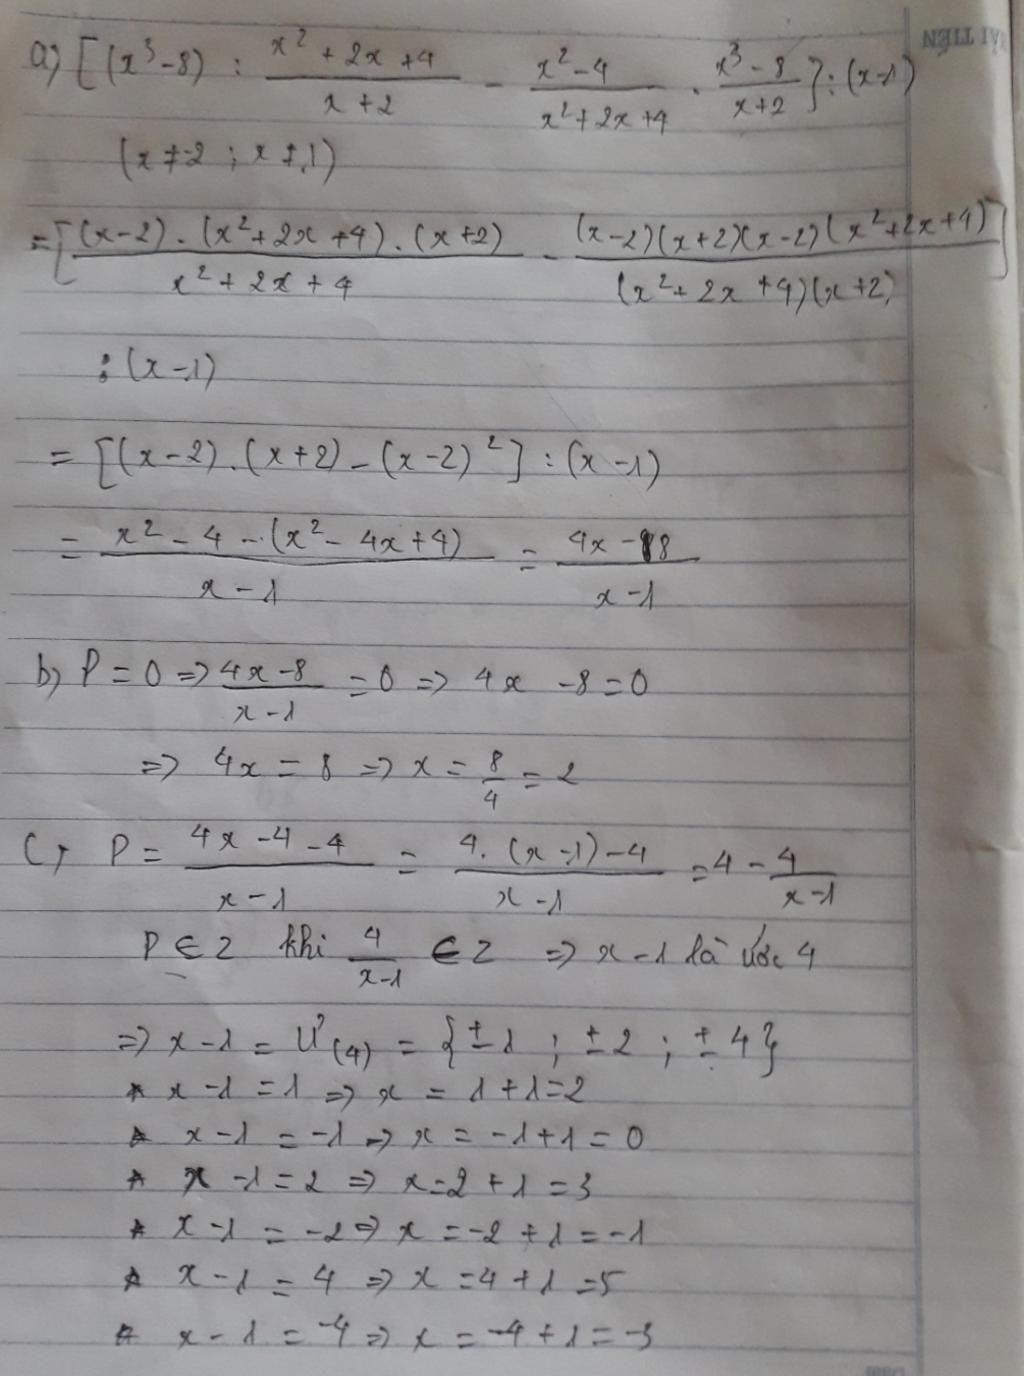 a) [(x³-8) : (x²+2x+4)/(x+2) - (x²-4)/(x²+2x+4) . (x³-8)/(x+2)] : (x-1)
(x≠-2 ; x≠1)
= [((x-2).(x²+2x+4).(x+2))/(x²+2x+4) - ((x-2)(x+2)(x-2)(x²+2x+4))/((x²+2x+4)(x+2))]
: (x-1)
= [(x-2).(x+2)-(x-2)²] : (x-1)
= (x²-4-(x²-4x+4))/(x-1) = (4x-8)/(x-1)
b) P=0 => (4x-8)/(x-1) = 0 => 4x-8=0
=> 4x=8 => x = 8/4 = 2
c) P = (4x-4-4)/(x-1) = (4.(x-1)-4)/(x-1) = 4 - 4/(x-1)
P ∈ Z khi 4/(x-1) ∈ Z => x-1 là ước 4
=> x-1 = Ư(4) = {±1 ; ±2 ; ±4}
* x-1=1 => x = 1+1=2
* x-1 = -1 => x = -1+1 = 0
* x-1=2 => x=2+1=3
* x-1 = -2 => x = -2+1 = -1
* x-1 = 4 => x = 4+1 = 5
* x-1 = -4 => x = -4+1 = -3